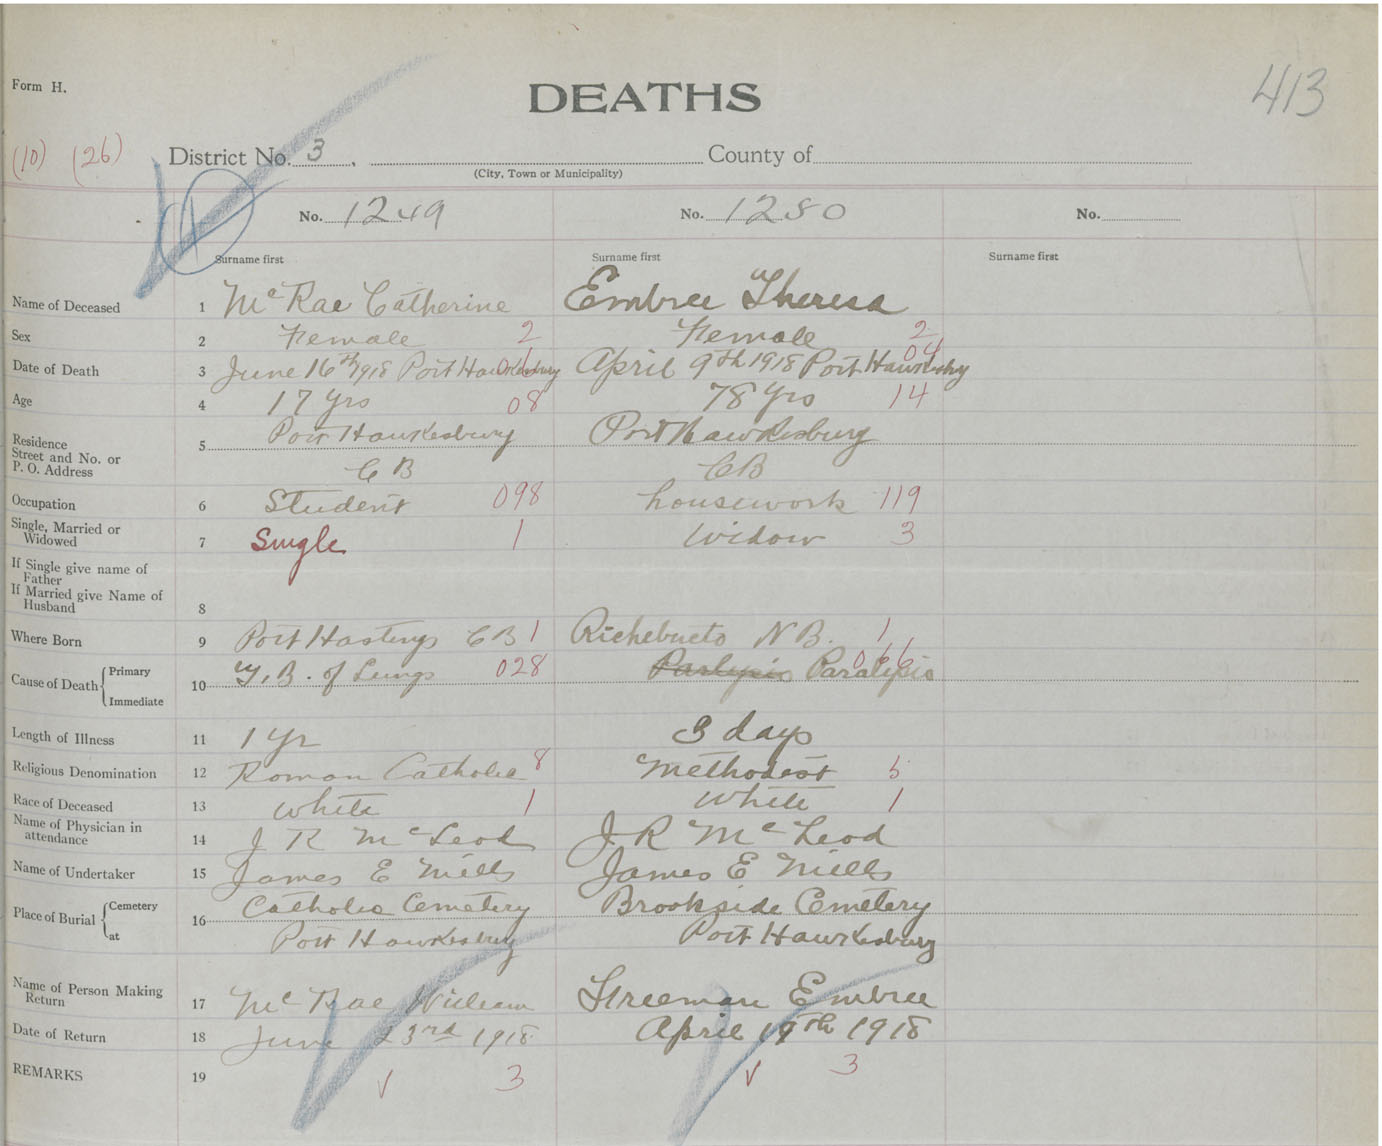 Form H.
DEATHS
413
(10) (26)
District No. 3, County of
(City, Town or Municipality)
No. 1249 No. 1250 No.
Surname first Surname first Surname first
Name of Deceased 1 McRae Catherine Embree Theresa
Sex 2 Female 2 Female 2
Date of Death 3 June 16th 1918 Port Hawkesbury April 9th 1918 Port Hawkesbury 04
Age 4 17 yrs 08 78 Yrs 14
Residence
Street and No. or
P. O. Address
5 Port Hawkesbury Port Hawkesbury
C B C B
Occupation 6 Student 098 housework 119
Single, Married or
Widowed 7 Single 1 Widow 3
If Single give name of
Father
If Married give Name of
Husband 8
Where Born 9 Port Hastings C B 1 Richebucto N B. 1
Cause of Death Primary
Immediate
10 T. B. of Lungs 028 Parlysis Paralysis 066
Length of Illness 11 1 yr 3 days
Religious Denomination 12 Roman Catholic 8 Methodist 5
Race of Deceased 13 White 1 White 1
Name of Physician in
attendance 14 J R McLeod J R McLeod
Name of Undertaker 15 James E Mills James E Mills
Place of Burial Cemetery
at
16 Catholic Cemetery Brookside Cemetery
Port Hawkesbury Port Hawkesbury
Name of Person Making
Return 17 McRae William Freeman Embree
Date of Return 18 June 23rd 1918 April 19th 1918
REMARKS 19 3 3